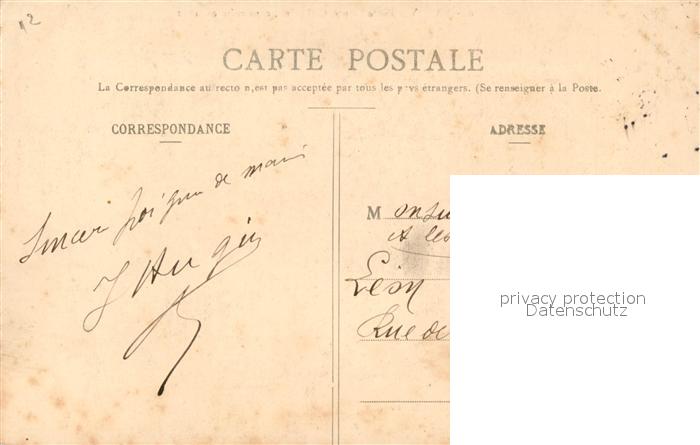 12
CARTE POSTALE
La Correspondance au recto n'est pas acceptée par tous les pays étrangers. (Se renseigner à la Poste.
CORRESPONDANCE
ADRESSE
Sincer poignee de main
M onsu
A les
Léon
Rue de
privacy protection
Datenschutz